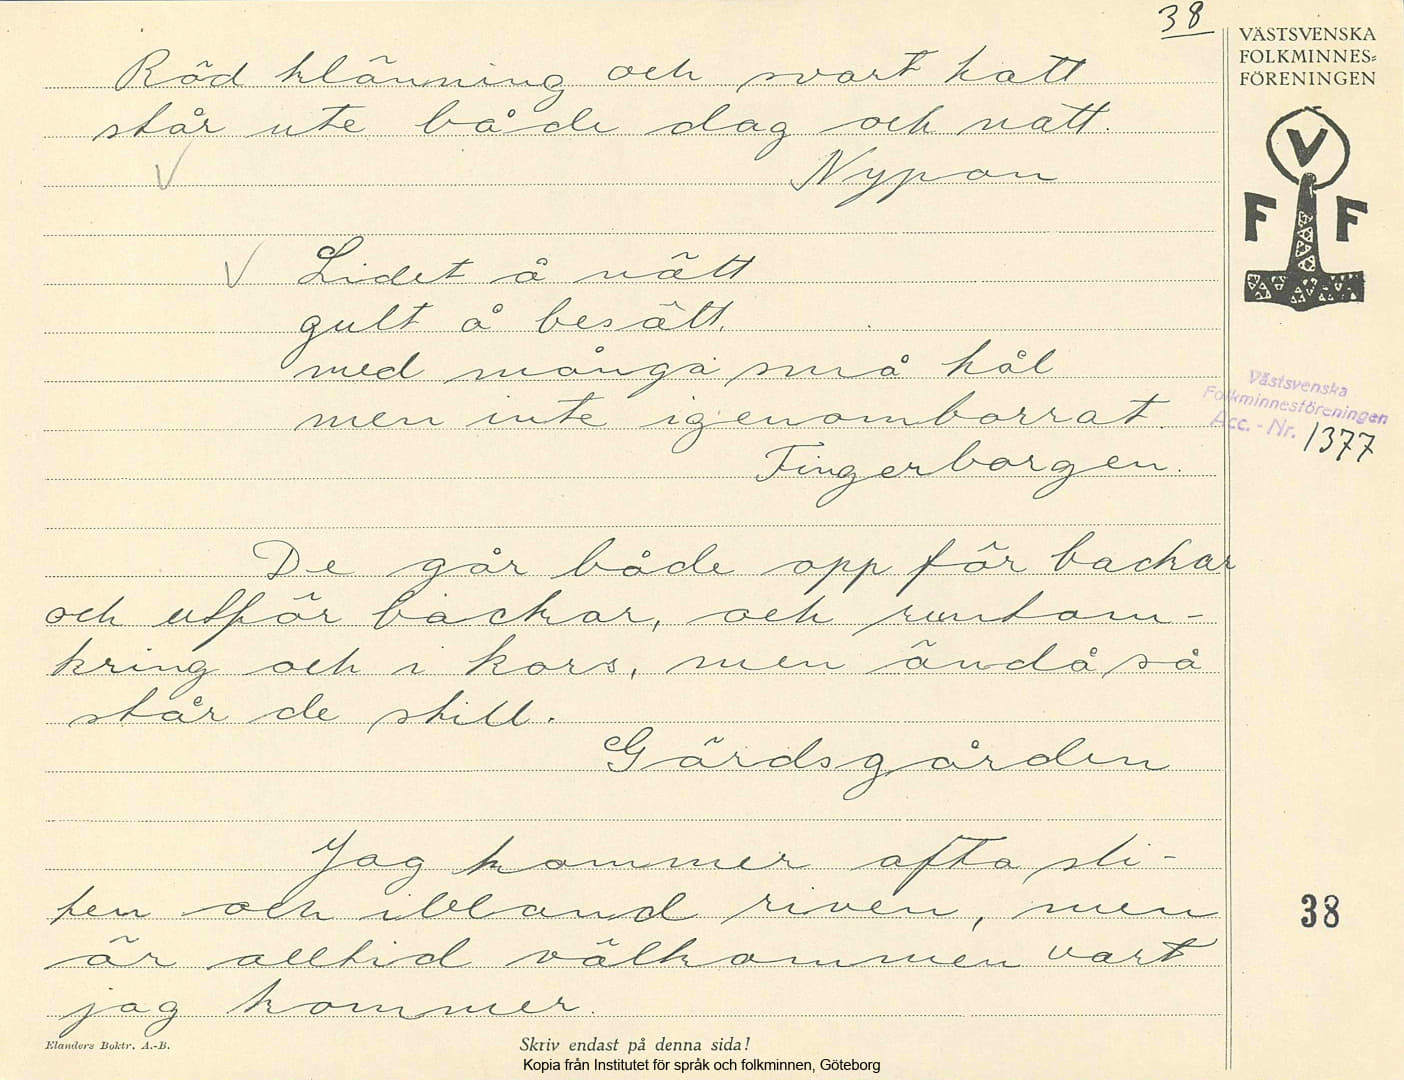 38
VÄSTSVENSKA
FOLKMINNES=
FÖRENINGEN
V
F F
Röd klänning och svart hatt
står ute både dag och natt.
Nypon
Lidet å nätt
gult å besätt,
med många små hål
men inte igenomborrat.
Fingerborgen.
De går både opp för backar
och utför backar, och runtom-
kring och i kors, men ändå så
står de still.
Gärdsgården
Jag kommer ofta sli-
ten och ibland riven, men
är alltid välkommen vart
jag kommer.
Västsvenska
Folkminnesföreningen
Acc. - Nr. 1377
38
Elanders Boktr. A.-B.
Skriv endast på denna sida!
Kopia från Institutet för språk och folkminnen, Göteborg